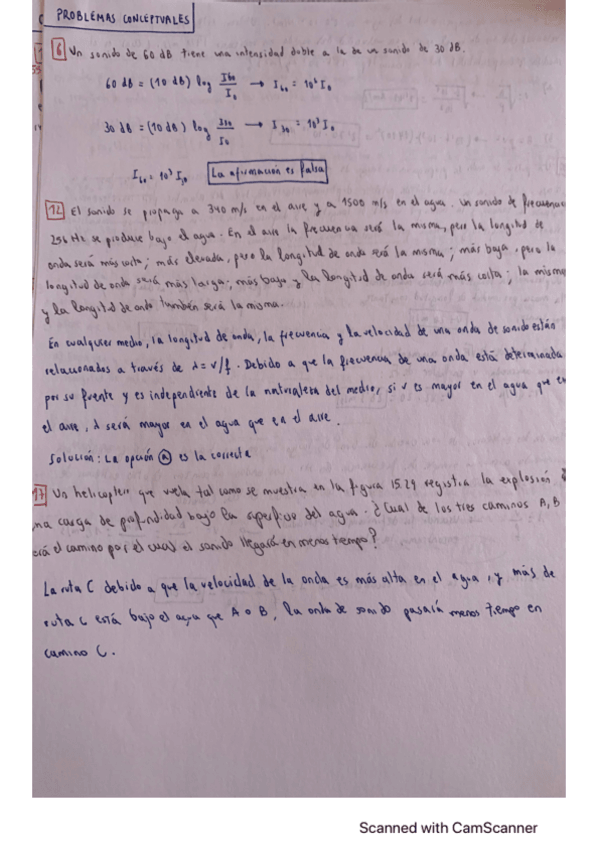 PROBLEMAS CONCEPTUALES
6 Un sonido de 60 dB tiene una intensidad doble a la de un sonido de 30 dB.
60 dB = (10 dB) log I60/I0 → I60 = 10⁶ I0
30 dB = (10 dB) log I30/I0 → I30 = 10³ I0
I60 = 10³ I30 La afirmación es falsa
12 El sonido se propaga a 340 m/s en el aire y a 1500 m/s en el agua. Un sonido de frecuencia
256 Hz se produce bajo el agua. En el aire la frecuencia será la misma, pero la longitud de
onda será más corta; más elevada, pero la longitud de onda será la misma; más baja, pero la
longitud de onda será más larga; más baja y la longitud de onda será más corta; la misma
y la longitud de onda también será la misma.
En cualquier medio, la longitud de onda, la frecuencia y la velocidad de una onda de sonido están
relacionados a través de λ = v/f. Debido a que la frecuencia de una onda está determinada
por su fuente y es independiente de la naturaleza del medio, si v es mayor en el agua que en
el aire, λ será mayor en el agua que en el aire.
Solución: La opción A es la correcta
17 Un helicóptero que vuela tal como se muestra en la figura 15.29 registra la explosión
una carga de profundidad bajo la superficie del agua. ¿Cual de los tres caminos A, B
será el camino por el cual el sonido llegará en menos tiempo?
La ruta C debido a que la velocidad de la onda es más alta en el agua, y más de
ruta C está bajo el agua que A o B, la onda de sonido pasaría menos tiempo en
camino C.
Scanned with CamScanner